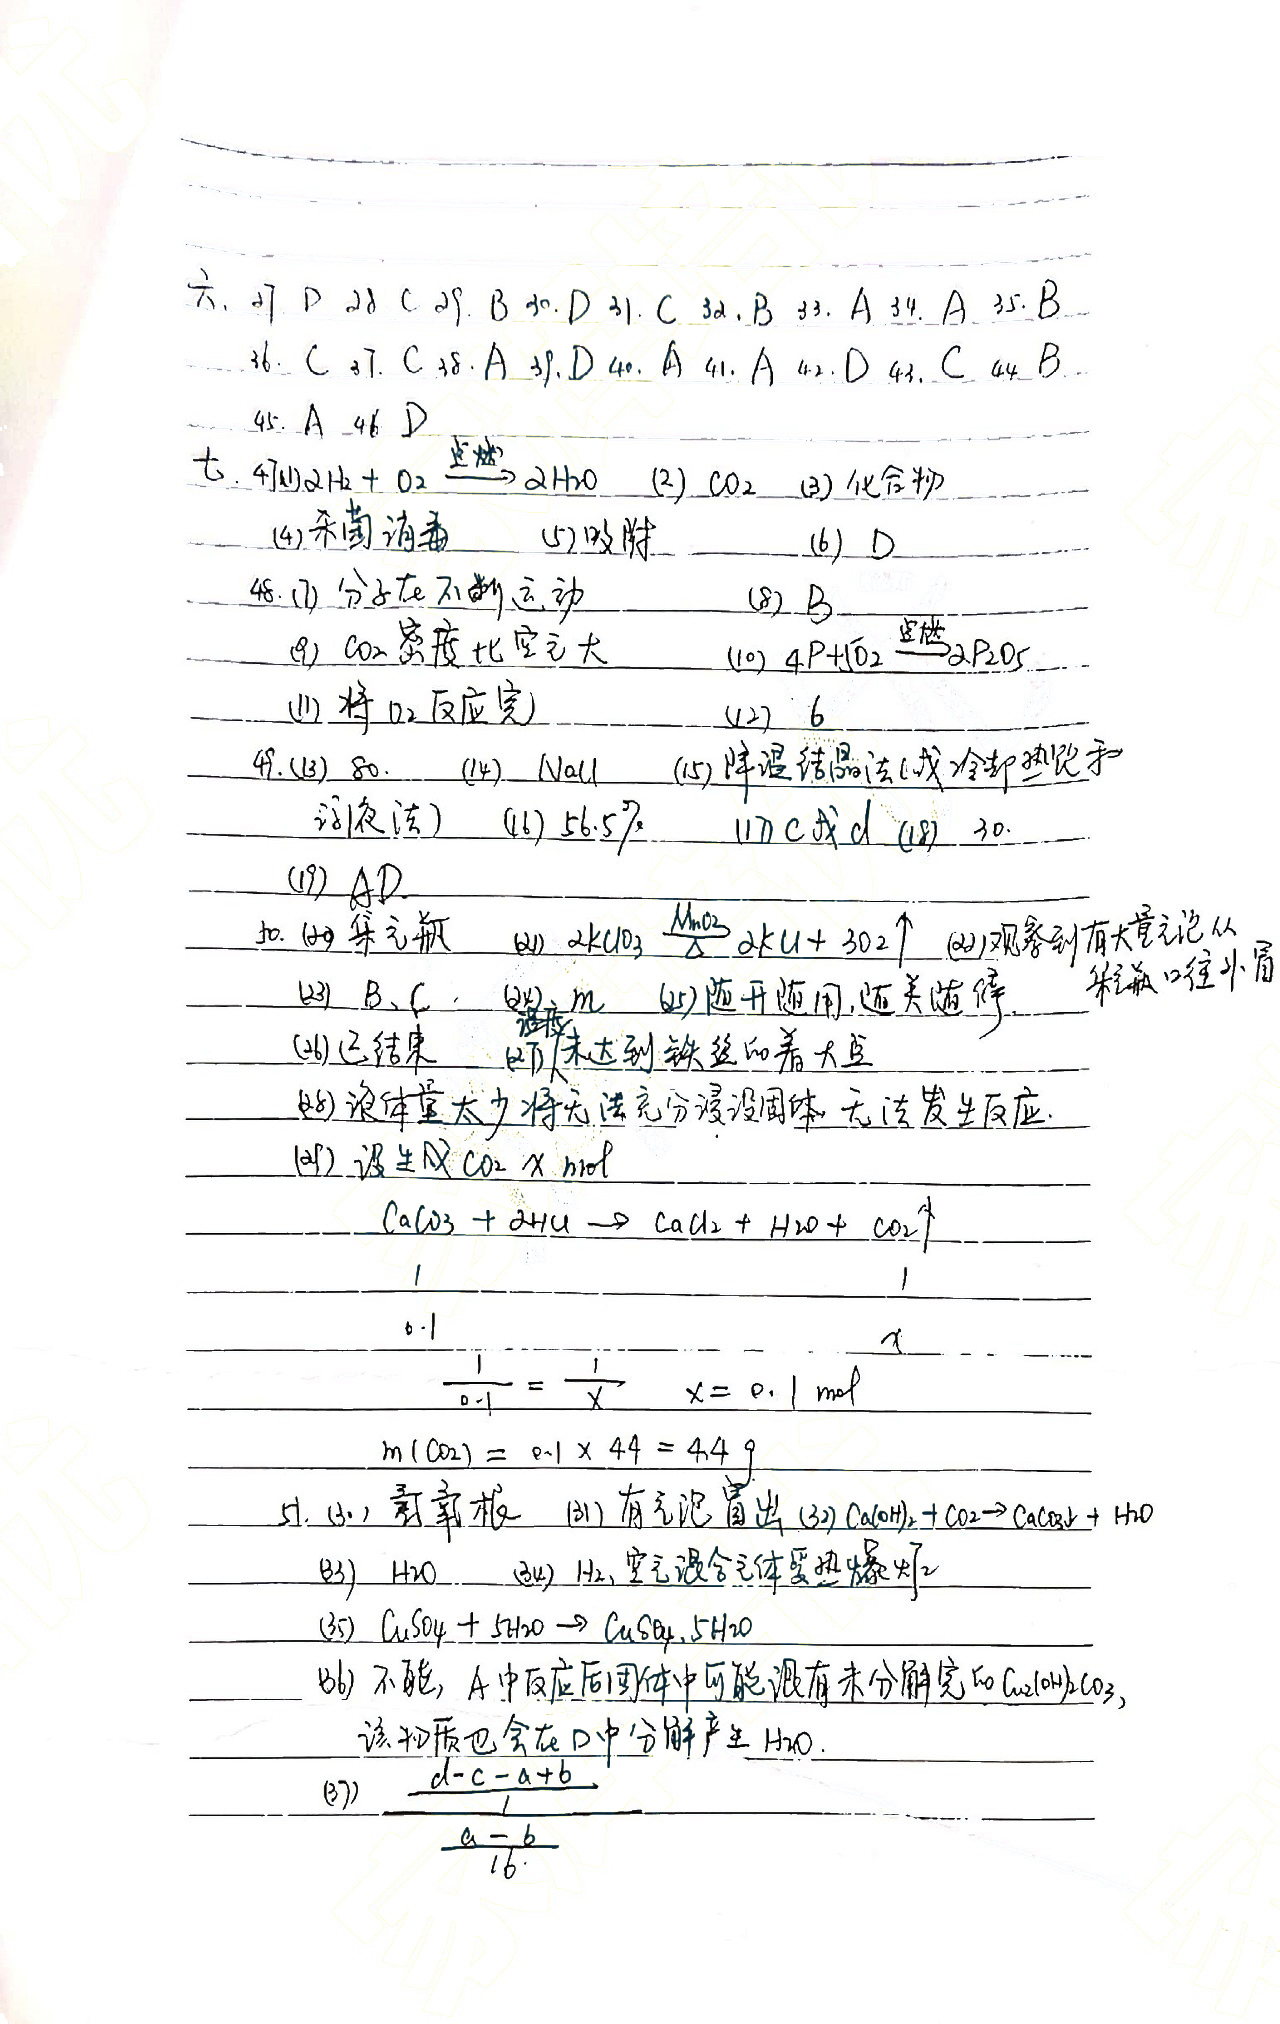 六. 27 D 28 C 29. B 30. D 31. C 32. B 33. A 34. A 35. B
36. C 37. C 38. A 39. D 40. A 41. A 42. D 43. C 44 B
45. A 46 D
七. 47.(1) 2H2 + O2 —点燃→ 2H2O (2) CO2 (3) 化合物
(4) 杀菌消毒 (5) 吸附 (6) D
48. (7) 分子在不断运动 (8) B
(9) CO2密度比空气大 (10) 4P+5O2 —点燃→ 2P2O5
(11) 将O2反应完 (12) 6
49. (13) 80. (14) NaCl (15) 降温结晶法(或冷却热饱和
溶液法) (16) 56.5% (17) c或d (18) 30.
(19) AD.
50. (20) 集气瓶 (21) 2KClO3 =MnO2/△= 2KCl + 3O2↑ (22) 观察到有大量气泡从
集气瓶口往外冒
(23) B、C. (24) m (25) 随开随用,随关随停.
(26) 已结束 (27) 温度未达到铁丝的着火点
(28) 液体量太少将无法充分浸没固体 无法发生反应.
(29) 设生成CO2 x mol
CaCO3 + 2HCl → CaCl2 + H2O + CO2↑
1 1
0.1 x
1/0.1 = 1/x x = 0.1 mol
m(CO2) = 0.1 × 44 = 4.4 g
51. (30) 氢氧根 (31) 有气泡冒出 (32) Ca(OH)2 + CO2 → CaCO3↓ + H2O
(33) H2O (34) H2、空气混合气体受热爆炸
(35) CuSO4 + 5H2O → CuSO4.5H2O
(36) 不能, A中反应后固体中可能混有未分解完的Cu2(OH)2CO3,
该物质也会在D中分解产生H2O.
(37) d-c-a+b
1
a-b
16.